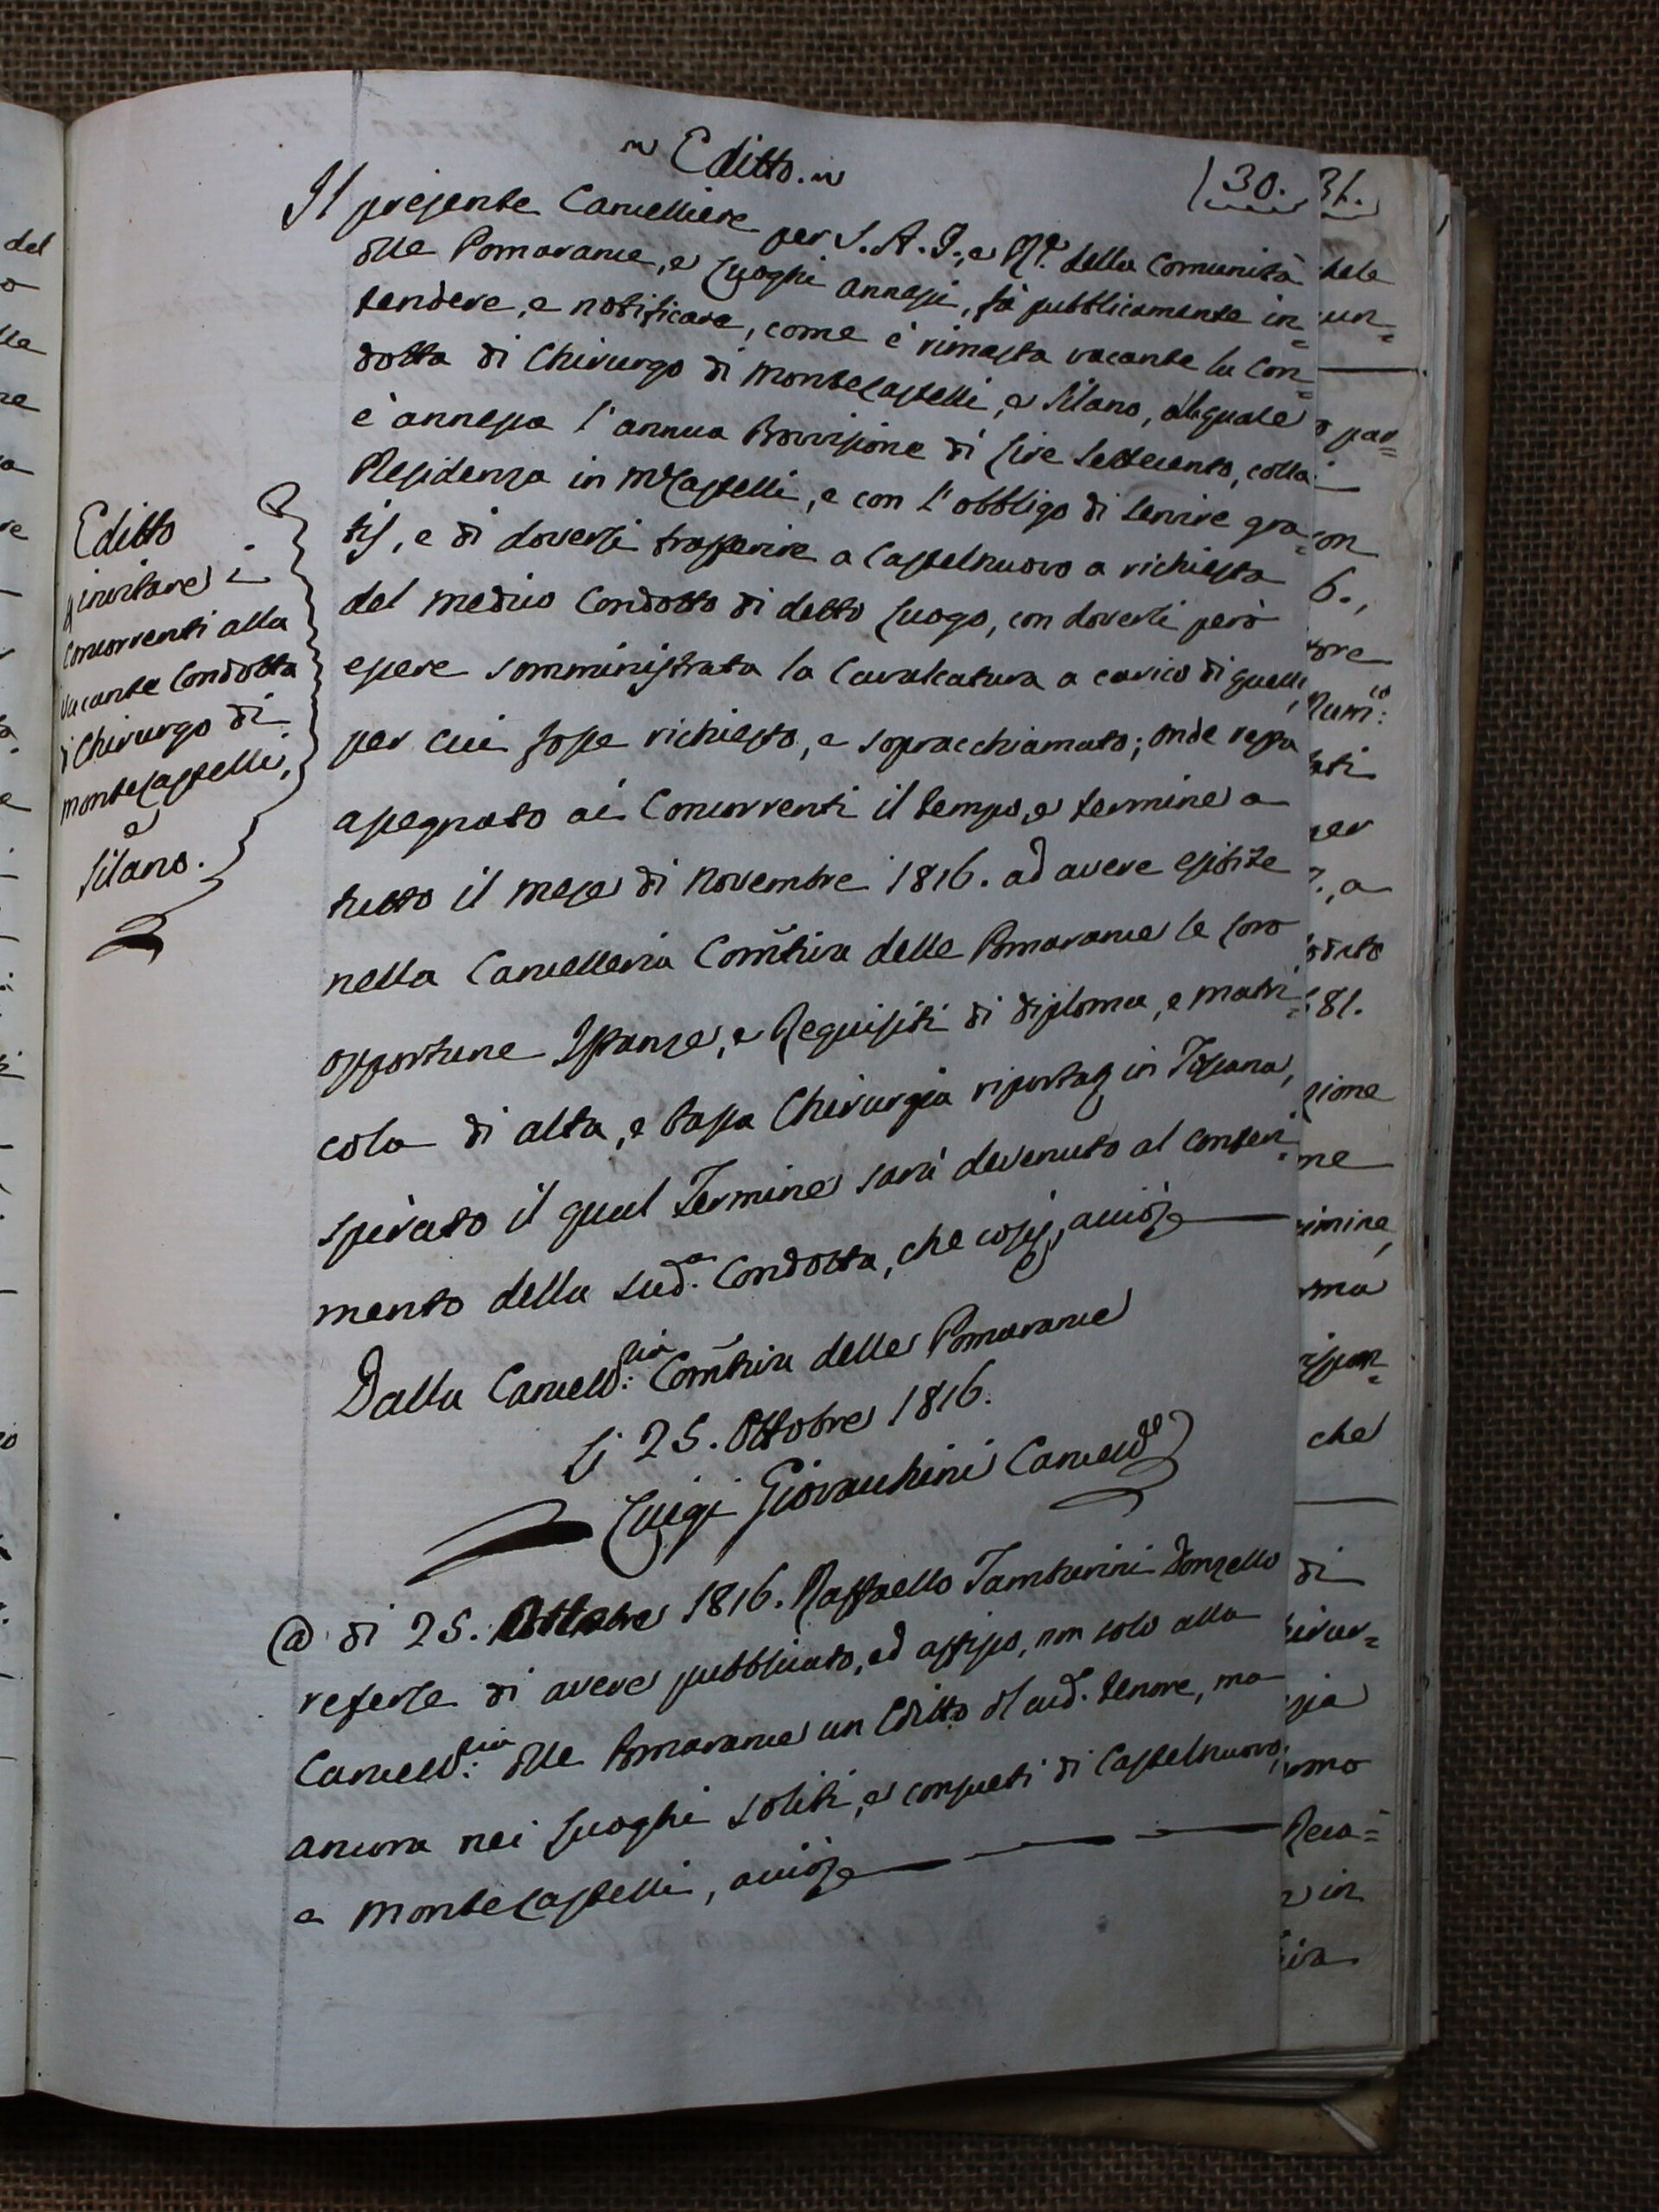 Editto.
30.
Il presente Cancelliere per S. A. I., e R.e della Comunità
delle Pomarance, e Luoghi annessi, fà pubblicamente in=
tendere, e notificare, come è rimasta vacante la Con=
dotta di Chirurgo di MonteCastelli, e Silano, alla quale
è annessa l'annua Provvisione di Lire Settecento, colla
Residenza in M.Castelli, e con l'obbligo di servire gra=
tis, e di doversi trasferire a Castelnuovo a richiesta
del Medico Condotto di detto Luogo, con doverli però
essere somministrata la Cavalcatura a carico di quelli,
per cui fosse richiesto, e sopracchiamato; onde resta
assegnato ai Concorrenti il tempo, e termine a
tutto il mese di Novembre 1816. ad avere esibite
nella Cancelleria Com̃tiva delle Pomarance le loro
opportune Istanze, e Requisiti di diploma, e matri=
cola di alta, e bassa Chirurgia riportata in Toscana,
spirato il qual Termine sarà devenuto al conferi=
mento della sud.a Condotta, che così,
Dalla Cancell:ria Com̃tiva delle Pomarance
Li 25. Ottobre 1816.
Luigi Giovacchini Cancell.e
Editto
invitare i
Concorrenti alla
vacante Condotta
di Chirurgo di
MonteCastelli,
e
Silano.
A dì 25. Ottobre 1816. Raffaello Tamburini Donzello
referse di avere pubblicato, ed affisso, non solo alla
Cancell:ria delle Pomarance un Editto del sud. tenore, ma
ancora nei Luoghi soliti, e consueti di Castelnuovo,
e MonteCastelli,
31.